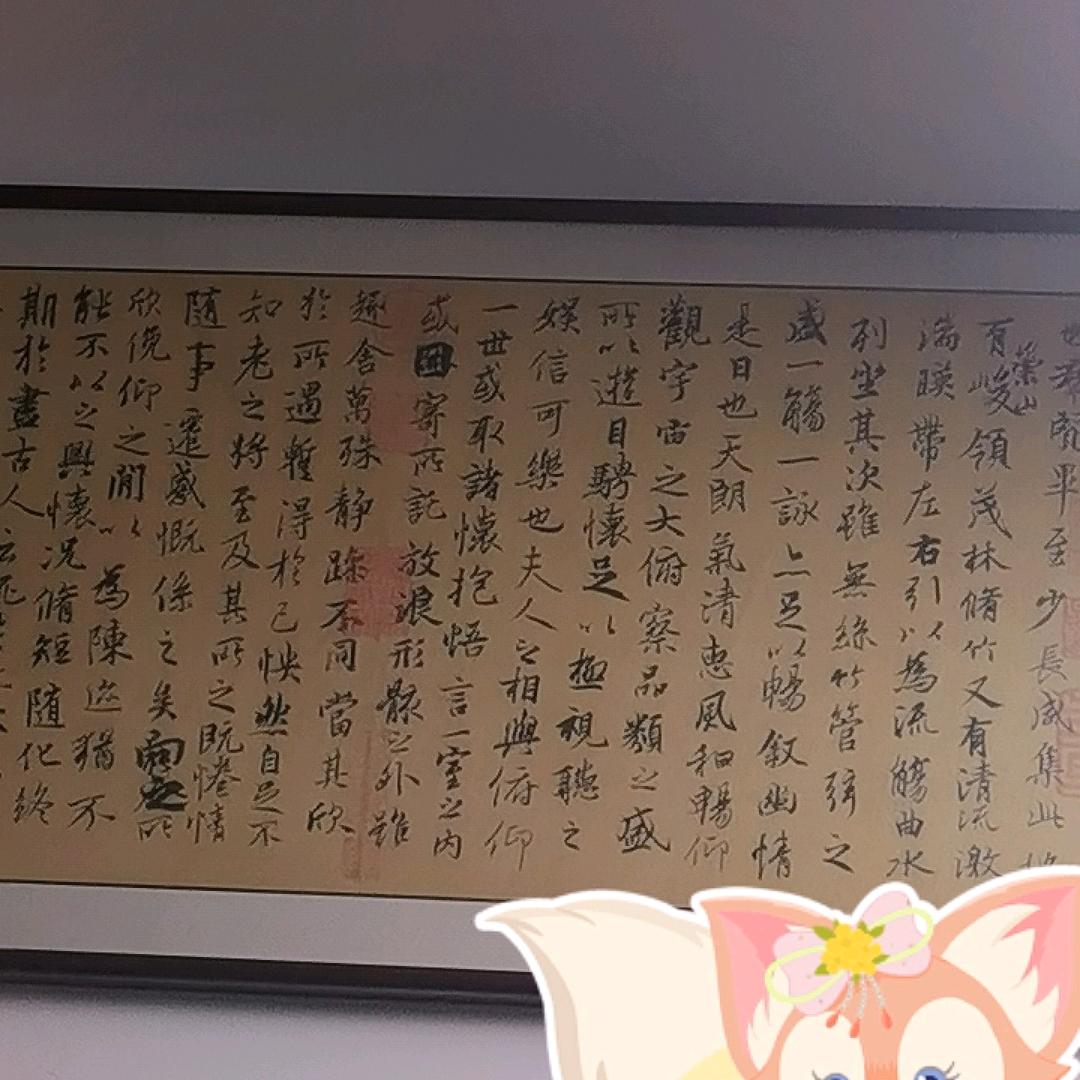 羣賢畢至少長咸集此地
有崇山峻領茂林脩竹又有清流激
湍暎帶左右引以為流觴曲水
列坐其次雖無絲竹管弦之
盛一觴一詠亦足以暢敘幽情
是日也天朗氣清惠風和暢仰
觀宇宙之大俯察品類之盛
所以遊目騁懷足以極視聽之
娛信可樂也夫人之相與俯仰
一世或取諸懷抱悟言一室之內
或因寄所託放浪形骸之外雖
趣舍萬殊靜躁不同當其欣
於所遇暫得於己怏然自足不
知老之將至及其所之既惓情
隨事遷感慨係之矣向之所
欣俛仰之間以為陳迹猶不
能不以之興懷況脩短隨化終
期於盡古人云死生